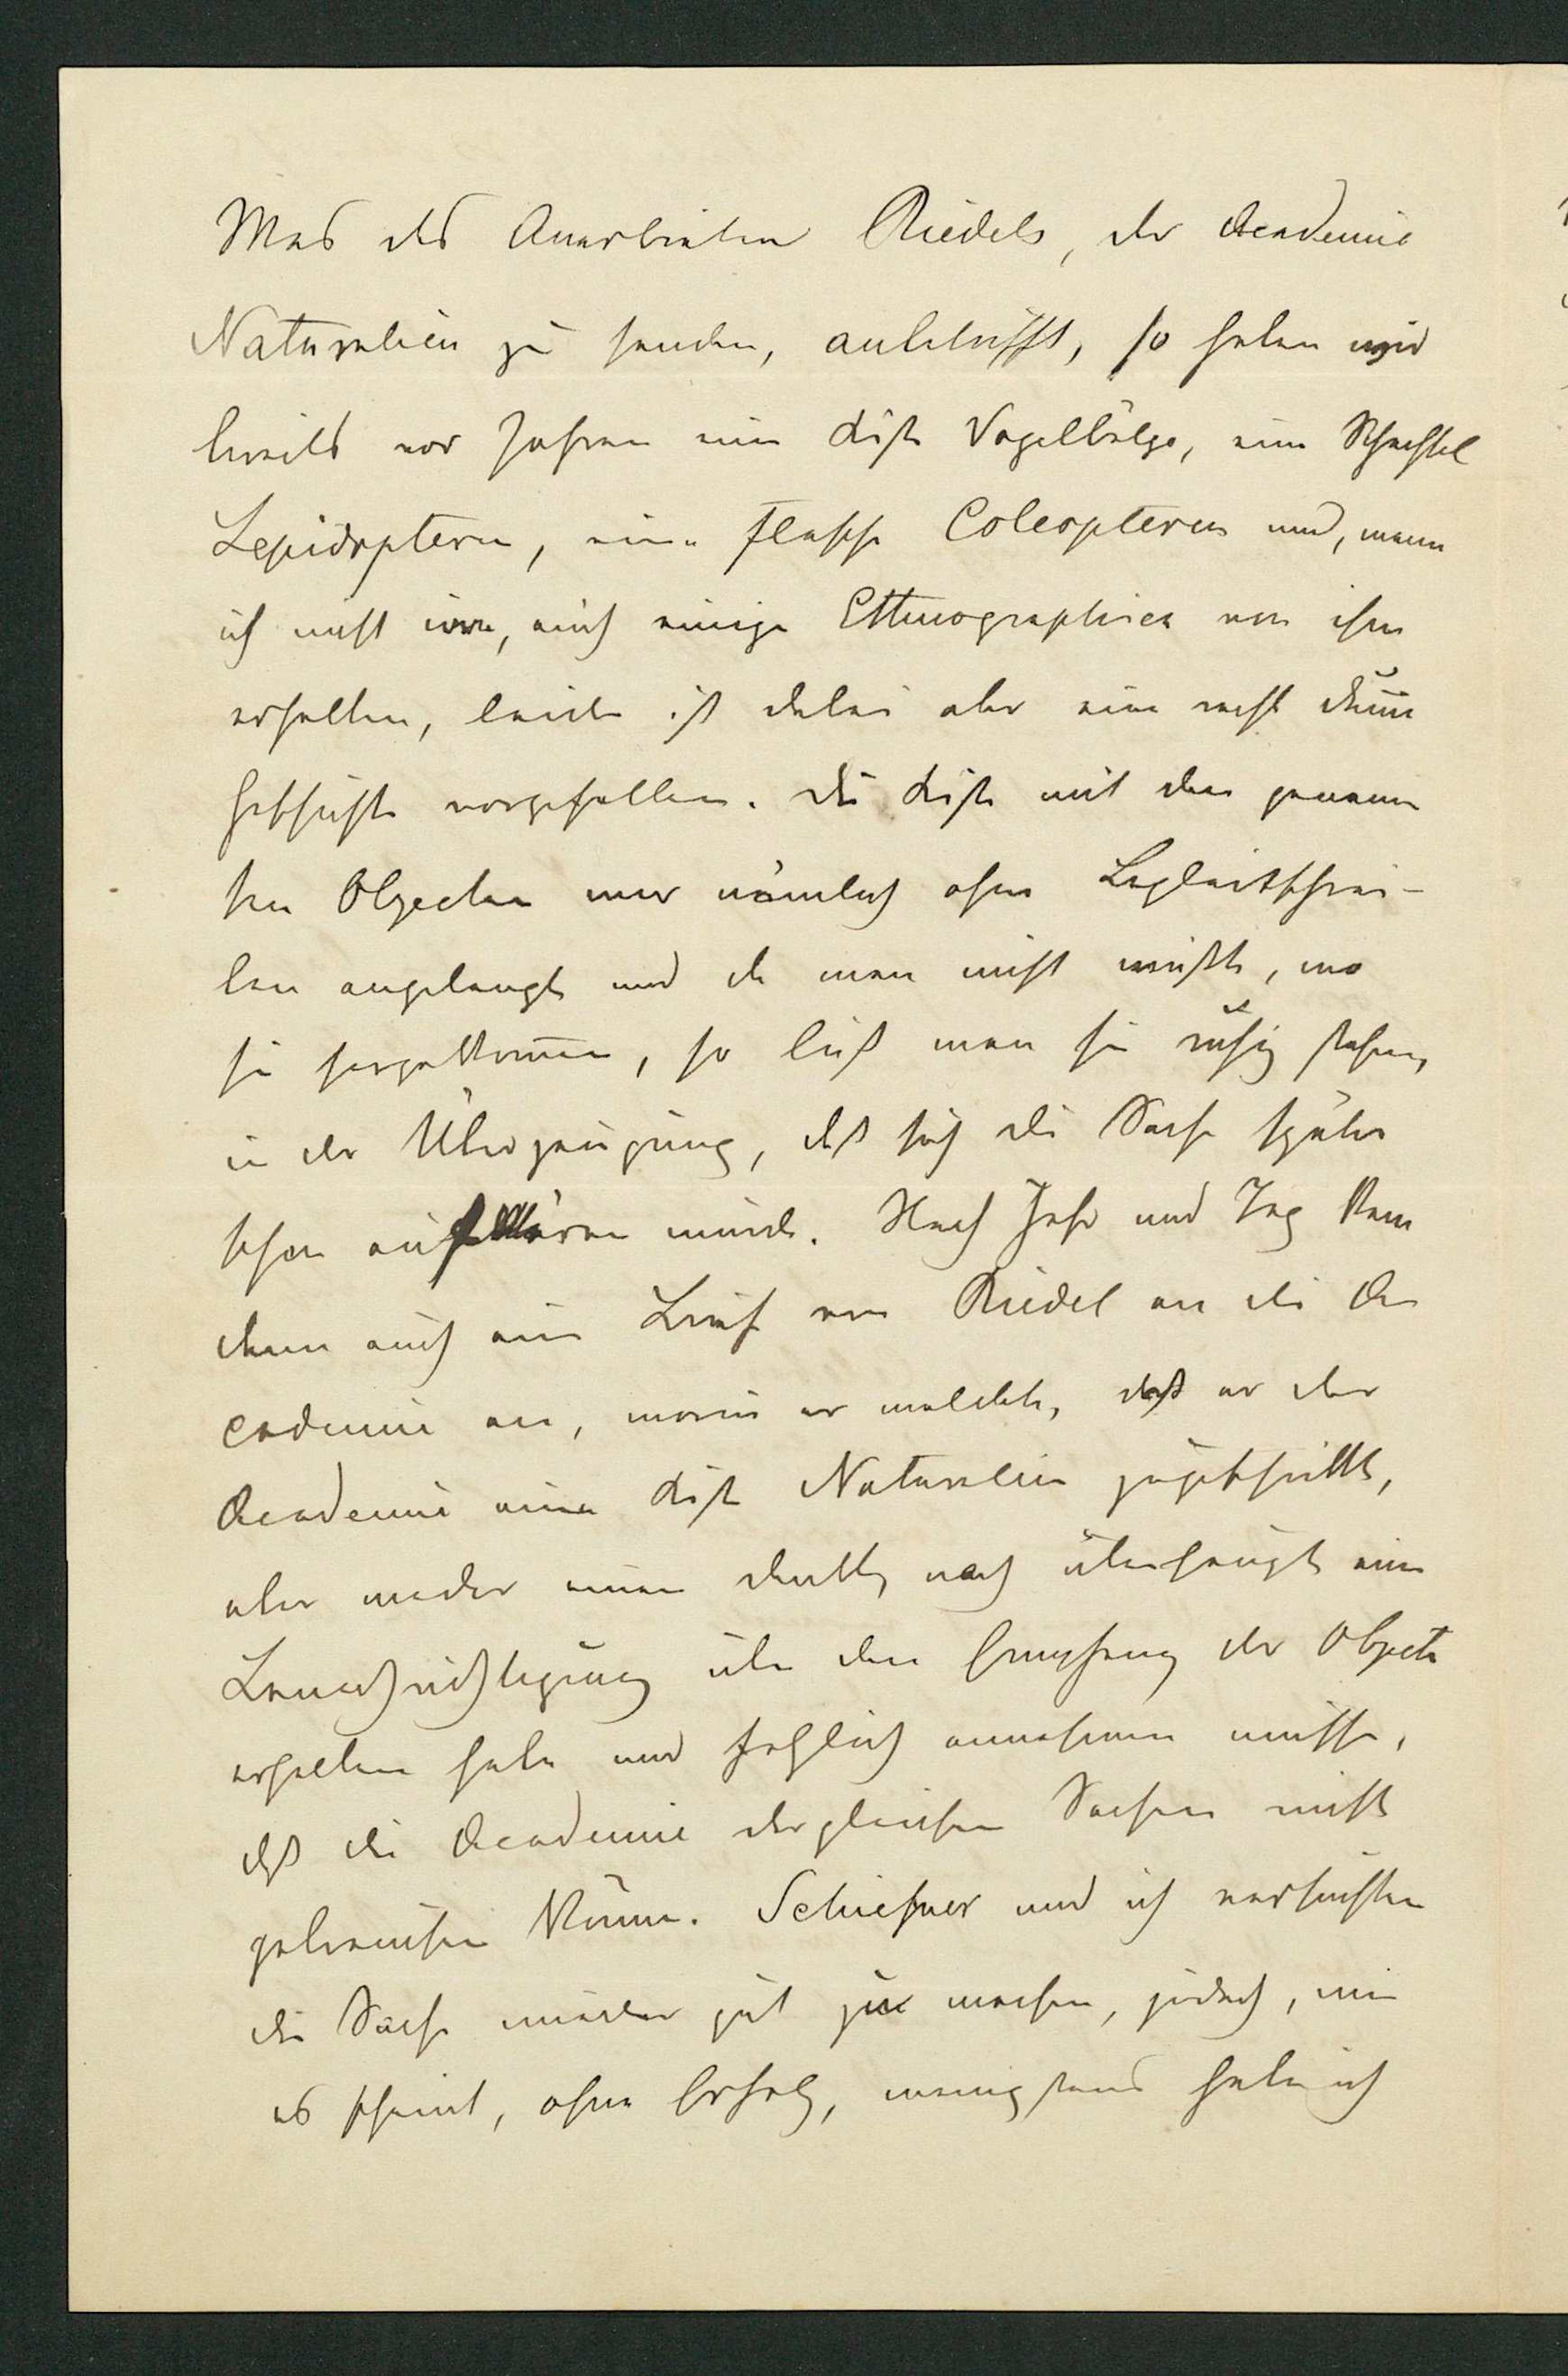 Was das Anerbieten Riedels, der Academie
Naturalien zu senden, anbetrifft, so haben wir
bereits vor Jahren eine Kiste Vogelbälge, eine Schachtel
Lepidoptern, eine Flasche Coleoptern und, wenn
ich nicht irre, auch einige Ethnographica von ihm
erhalten, leider ist dabei aber eine recht dum̄e
Geschichte vorgefallen. Die Kiste mit den genann
ten Objecten war nämlich ohne Begleitschrei-
ben angelangt und da man nicht wußte, wo
sie hergekom̄en, so ließ man sie ruhig stehen,
in der Überzeugung, daß sich die Sache später
schon aufklären würde. Nach Jahr und Tag kam
denn auch ein Brief von Riedel an die A
cademie an, worin er meldete, daß er der
Academie eine Kiste Naturalien zugeschickt,
aber weder einen Dank, noch überhaupt eine
Benachrichtigung über den Empfang der Objecte
erhalten habe und folglich annehmen müsse,
daß die Academie dergleichen Sachen nicht
gebrauchen könne. Schiefner und ich versuchten
die Sache wieder gut zu machen, jedoch, wie
es scheint, ohne Erfolg, wenigstens habe ich